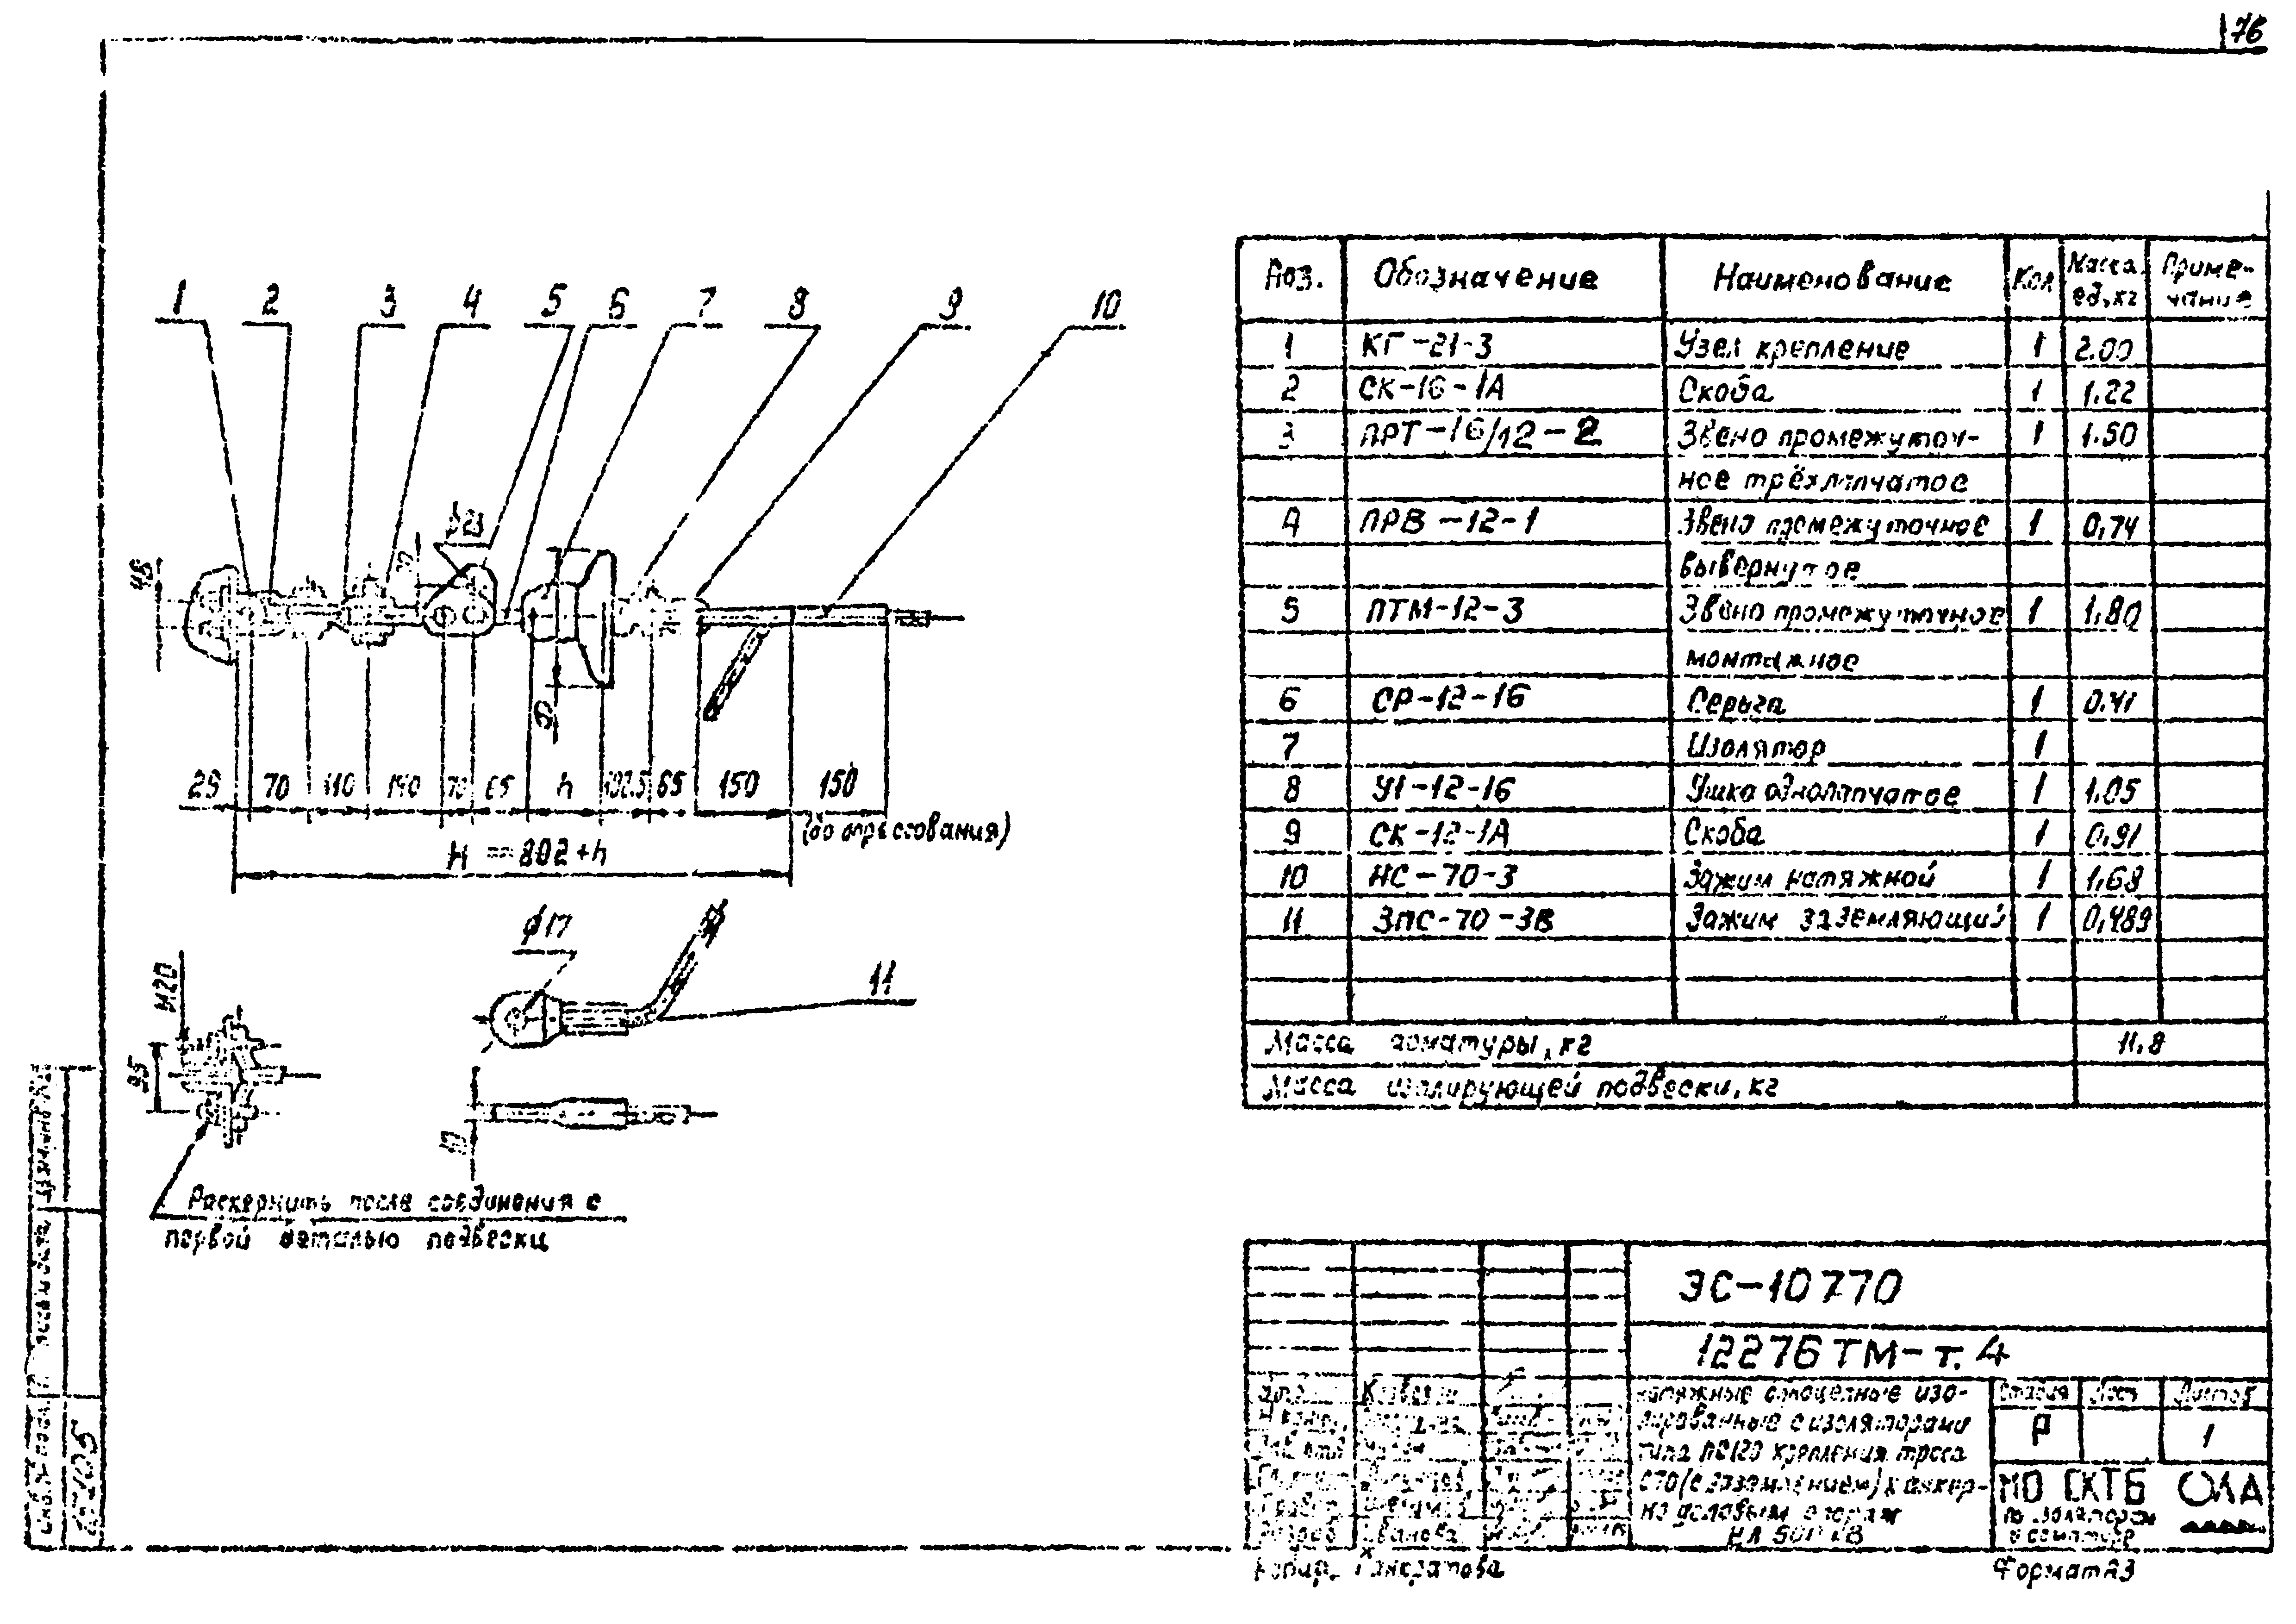 76
1 2 3 4 5 6 7 8 9 10
29 70 110 140 70 65 h 102.5 65 150 150
(до опрессования)
H = 802+h
φ17
11
M20
95
10
Раскернить после соединения с
первой деталью подвески
Поз. Обозначение Наименование Кол Масса ед,кг Приме-чание
1 КГ-21-3 Узел крепление 1 2.00
2 СК-16-1А Скоба 1 1.22
3 ПРТ-16/12-2 Звено промежуточ- 1 1.50
ное трёхлапчатое
4 ПРВ-12-1 Звено промежуточное 1 0,74
вывернутое
5 ПТМ-12-3 Звено промежуточное 1 1.80
монтажное
6 СР-12-16 Серьга 1 0.41
7 Изолятор 1
8 У1-12-16 Ушко однолапчатое 1 1.05
9 СК-12-1А Скоба 1 0,91
10 НС-70-3 Зажим натяжной 1 1,68
11 ЗПС-70-3В Зажим заземляющий 1 0,489
Масса арматуры, кг 11.8
Масса изолирующей подвески, кг
ЭС-10770
12276ТМ-т.4
натяжные одноцепные изо-
лированные с изоляторами
типа ПС120 крепления троса
С70 (с заземлением) к анкер-
но угловым опорам
ВЛ 500 кВ
Стадия Лист Листов
Р 1
МО СКТБ
по изоляторам
и арматуре
Копир. Панкратова
Формат А3